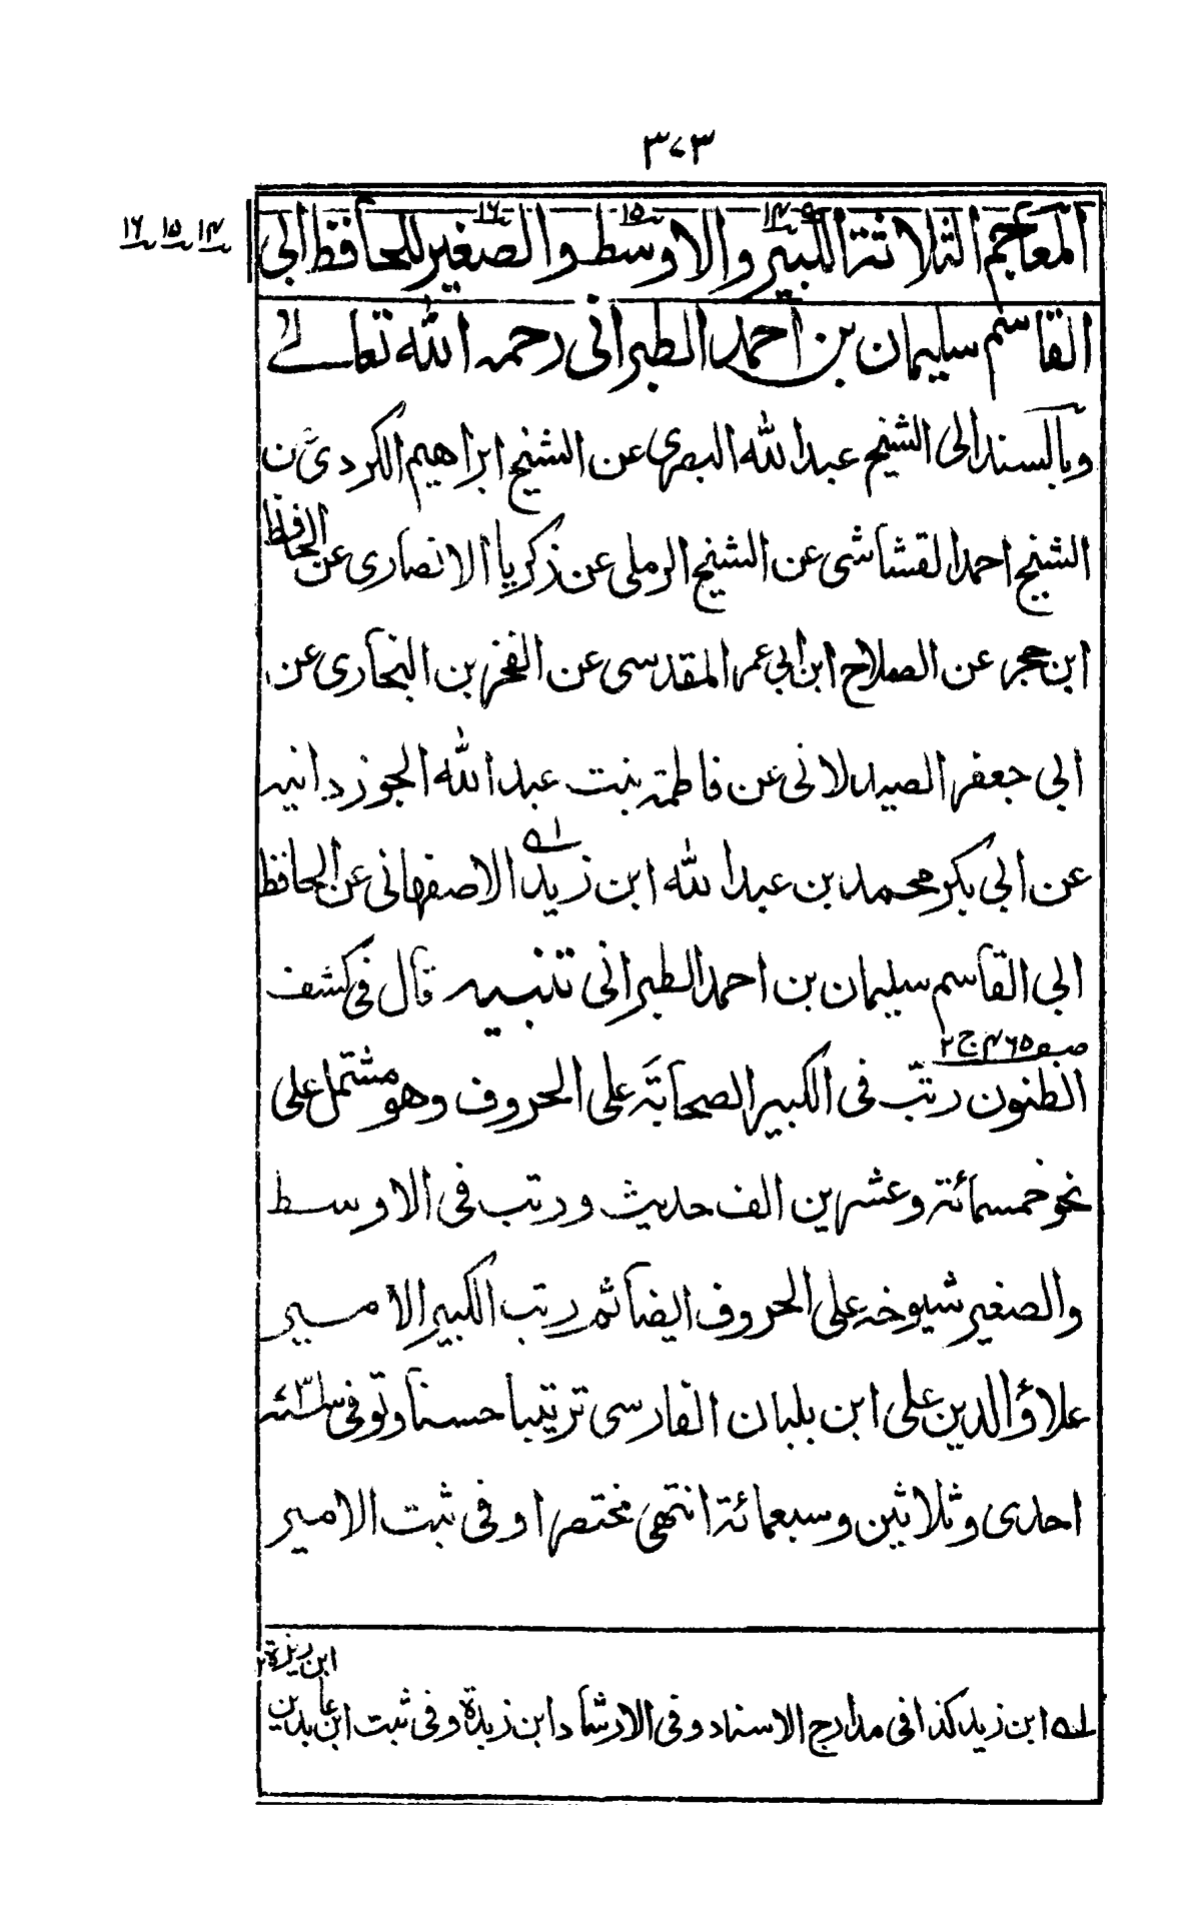 ٣٧٣
المعاجم الثلاثة الكبير والاوسط والصغير للحافظ ابي
١٤ ١٥ ١٦
القاسم سليمان بن احمد الطبرانى رحمه الله تعالى
وبالسند الى الشيخ عبد الله البصرى عن الشيخ ابراهيم الكردى عن
الشيخ احمد القشاشى عن الشيخ الرملى عن زكريا الانصارى عن الحافظ
ابن حجر عن الصلاح ابن ابي عمر المقدسى عن الفخر بن البخارى عن
ابي جعفر الصيدلانى عن فاطمة بنت عبد الله الجوزدانيه
عن ابي بكر محمد بن عبد الله ابن زيد الاصفهانى عن الحافظ
ابي القاسم سليمان بن احمد الطبرانى تنبيه قال فى كشف
صـ٤٦٥ ج ٢
الظنون رتّب فى الكبير الصحابة على الحروف وهو مشتمل على
نحو خمسمائة وعشرين الف حديث ورتب فى الاوسط
والصغير شيوخه على الحروف ايضا ثم رتب الكبير الامير
علاؤ الدين على ابن بلبان الفارسى ترتيبا حسنا وتوفى سنة ٧٣١
احدى وثلاثين وسبعمائة انتهى مختصرا وفى ثبت الامير
له ابن زيد كذا فى مدارج الاسناد وفى الارشاد ابن زيدة وفى ثبت ابن عابدين
ابن ريذة